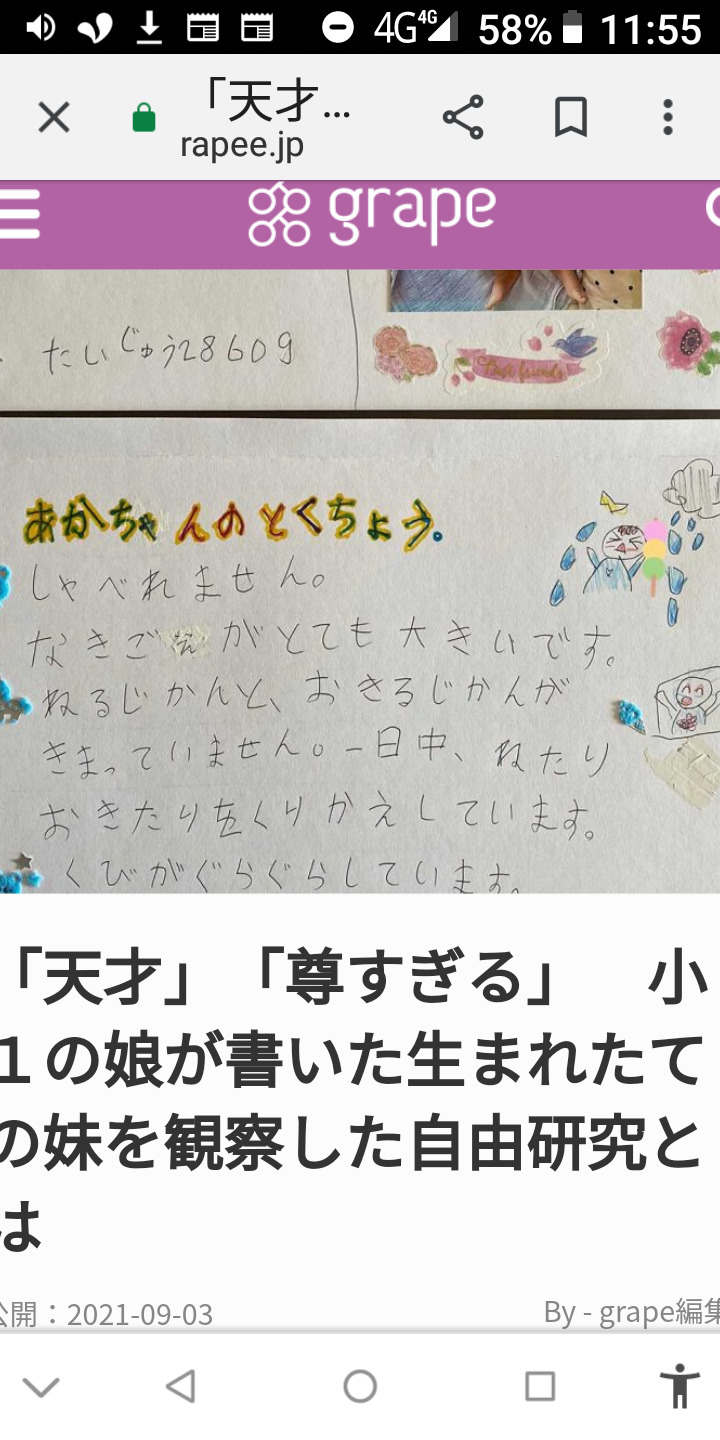 4G 4G 58% 11:55
「天才…
rapee.jp
grape
たいじゅう2860g
Best friends
あかちゃんのとくちょう。
しゃべれません。
なきごえがとても大きいです。
ねるじかんと、おきるじかんが
きまっていません。一日中、ねたり
おきたりをくりかえしています。
くびがぐらぐらしています。
「天才」「尊すぎる」　小
１の娘が書いた生まれたて
の妹を観察した自由研究と
は
公開：2021-09-03
By - grape編集